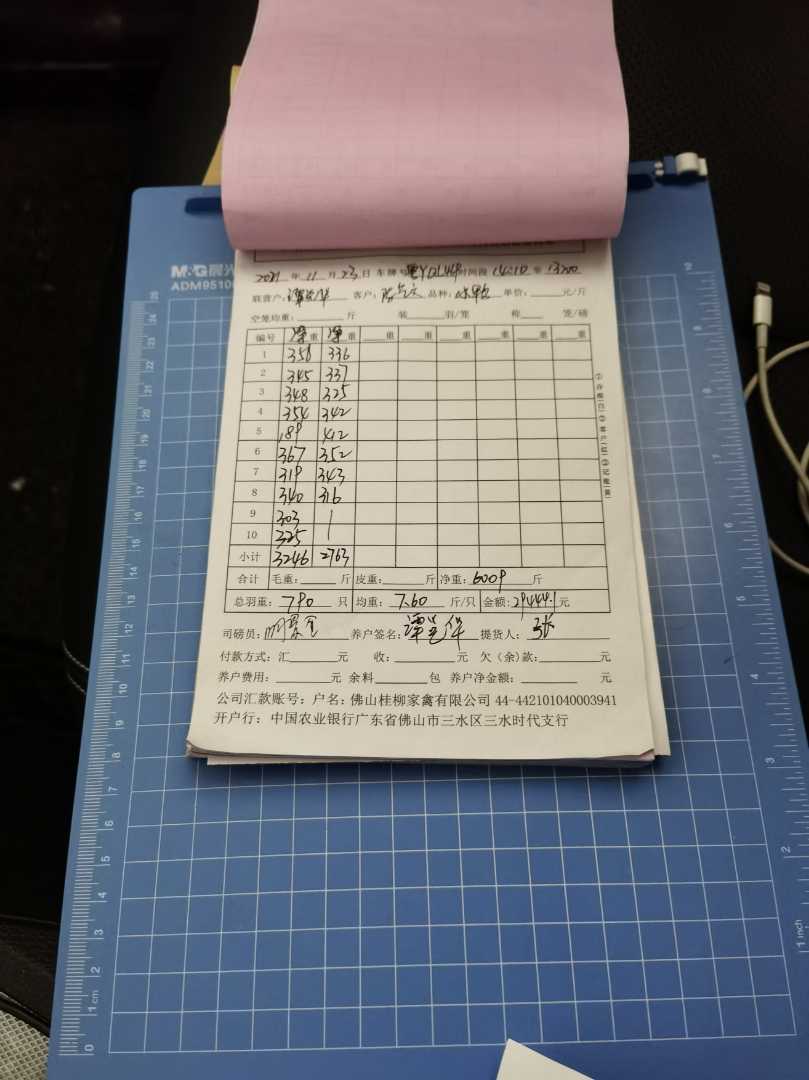 M&G 晨光
ADM9510
2021 年 11 月 23 日 车牌号 粤Y 时间段 14:10 至
联营户: 客户: 品种: 单价: 元/斤
空笼均重: 斤 装 羽/笼 称 笼/磅
编号 净重 净重 重 重 重 重 重 重
1 358 336
2 345 337
3 348 325
4 354 342
5 189 412
6 367 352
7 319 343
8 340 316
9 303
10 325
小计 3246 2763
合计 毛重: 斤 皮重: 斤 净重: 6009 斤
总羽重: 790 只 均重: 7.60 斤/只 金额: 29444.1 元
司磅员: 养户签名: 谭 华 提货人:
付款方式: 汇 元 收: 元 欠(余)款: 元
养户费用: 元 余料 包 养户净金额: 元
公司汇款账号: 户名: 佛山桂柳家禽有限公司 44-442101040003941
开户行: 中国农业银行广东省佛山市三水区三水时代支行